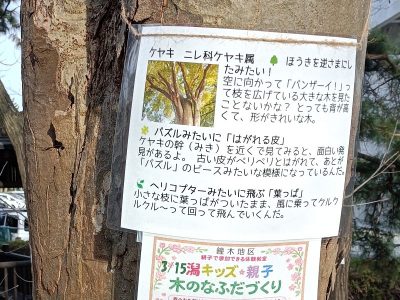 ケヤキ　ニレ科ケヤキ属　ほうきを逆さまにし
たみたい！
空に向かって「バンザーイ！」っ
て枝を広げている大きな木を見た
ことないかな？　とっても背が高
くて、形がきれいな木。
パズルみたいに「はがれる皮」
ケヤキの幹（みき）を近くで見てみると、面白い発
見があるよ。　古い皮がペリペリとはがれて、あとが
「パズル」のピースみたいな模様になっているんだ。
ヘリコプターみたいに飛ぶ「葉っぱ」
小さな枝に葉っぱがついたまま、風に乗ってクルク
ルクル〜って回って飛んでいくんだ。
鐘木地区
親子で参加できる体験教室
3/15潟キッズ★親子
木のなふだづくり